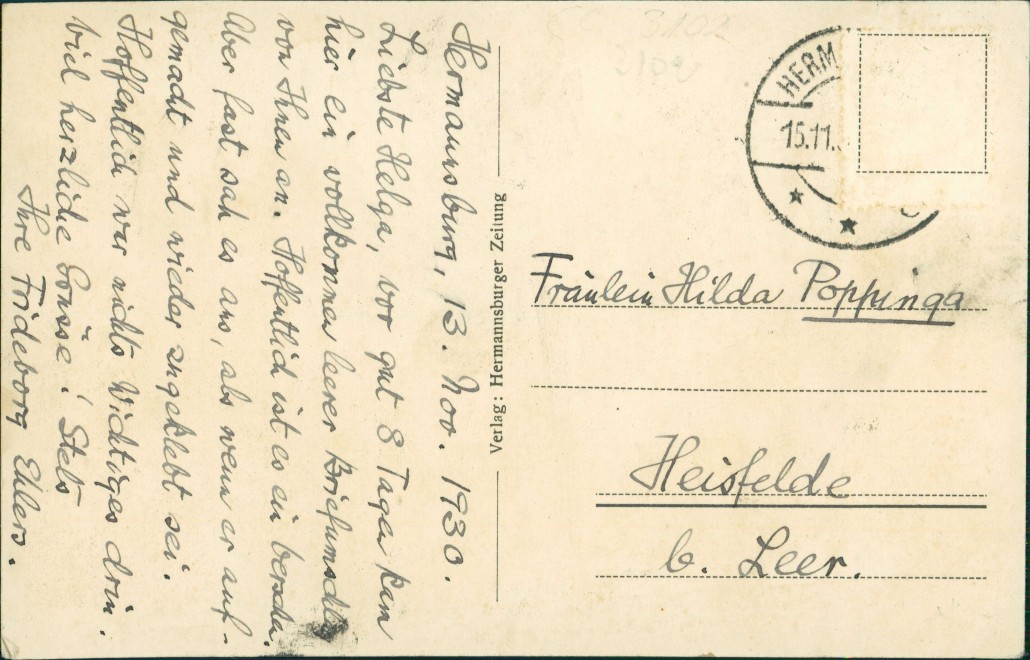 Hermannsburg, 13. Nov. 1930.
Liebste Helga, vor gut 8 Tagen kam
hier ein vollkommen leerer Briefumschlag
von Ihnen an. Hoffentlich ist es ein
Aber fast sah es aus, als wenn er auf-
gemacht und wieder zugeklebt sei.
Hoffentlich war nichts Wichtiges drin.
viel herzliche Grüsse! Stets
Ihre Frideborg Ehlers.
Verlag: Hermannsburger Zeitung
3102
HERM
15.11.
Fräulein Hilda Poppinga
Heisfelde
b. Leer.